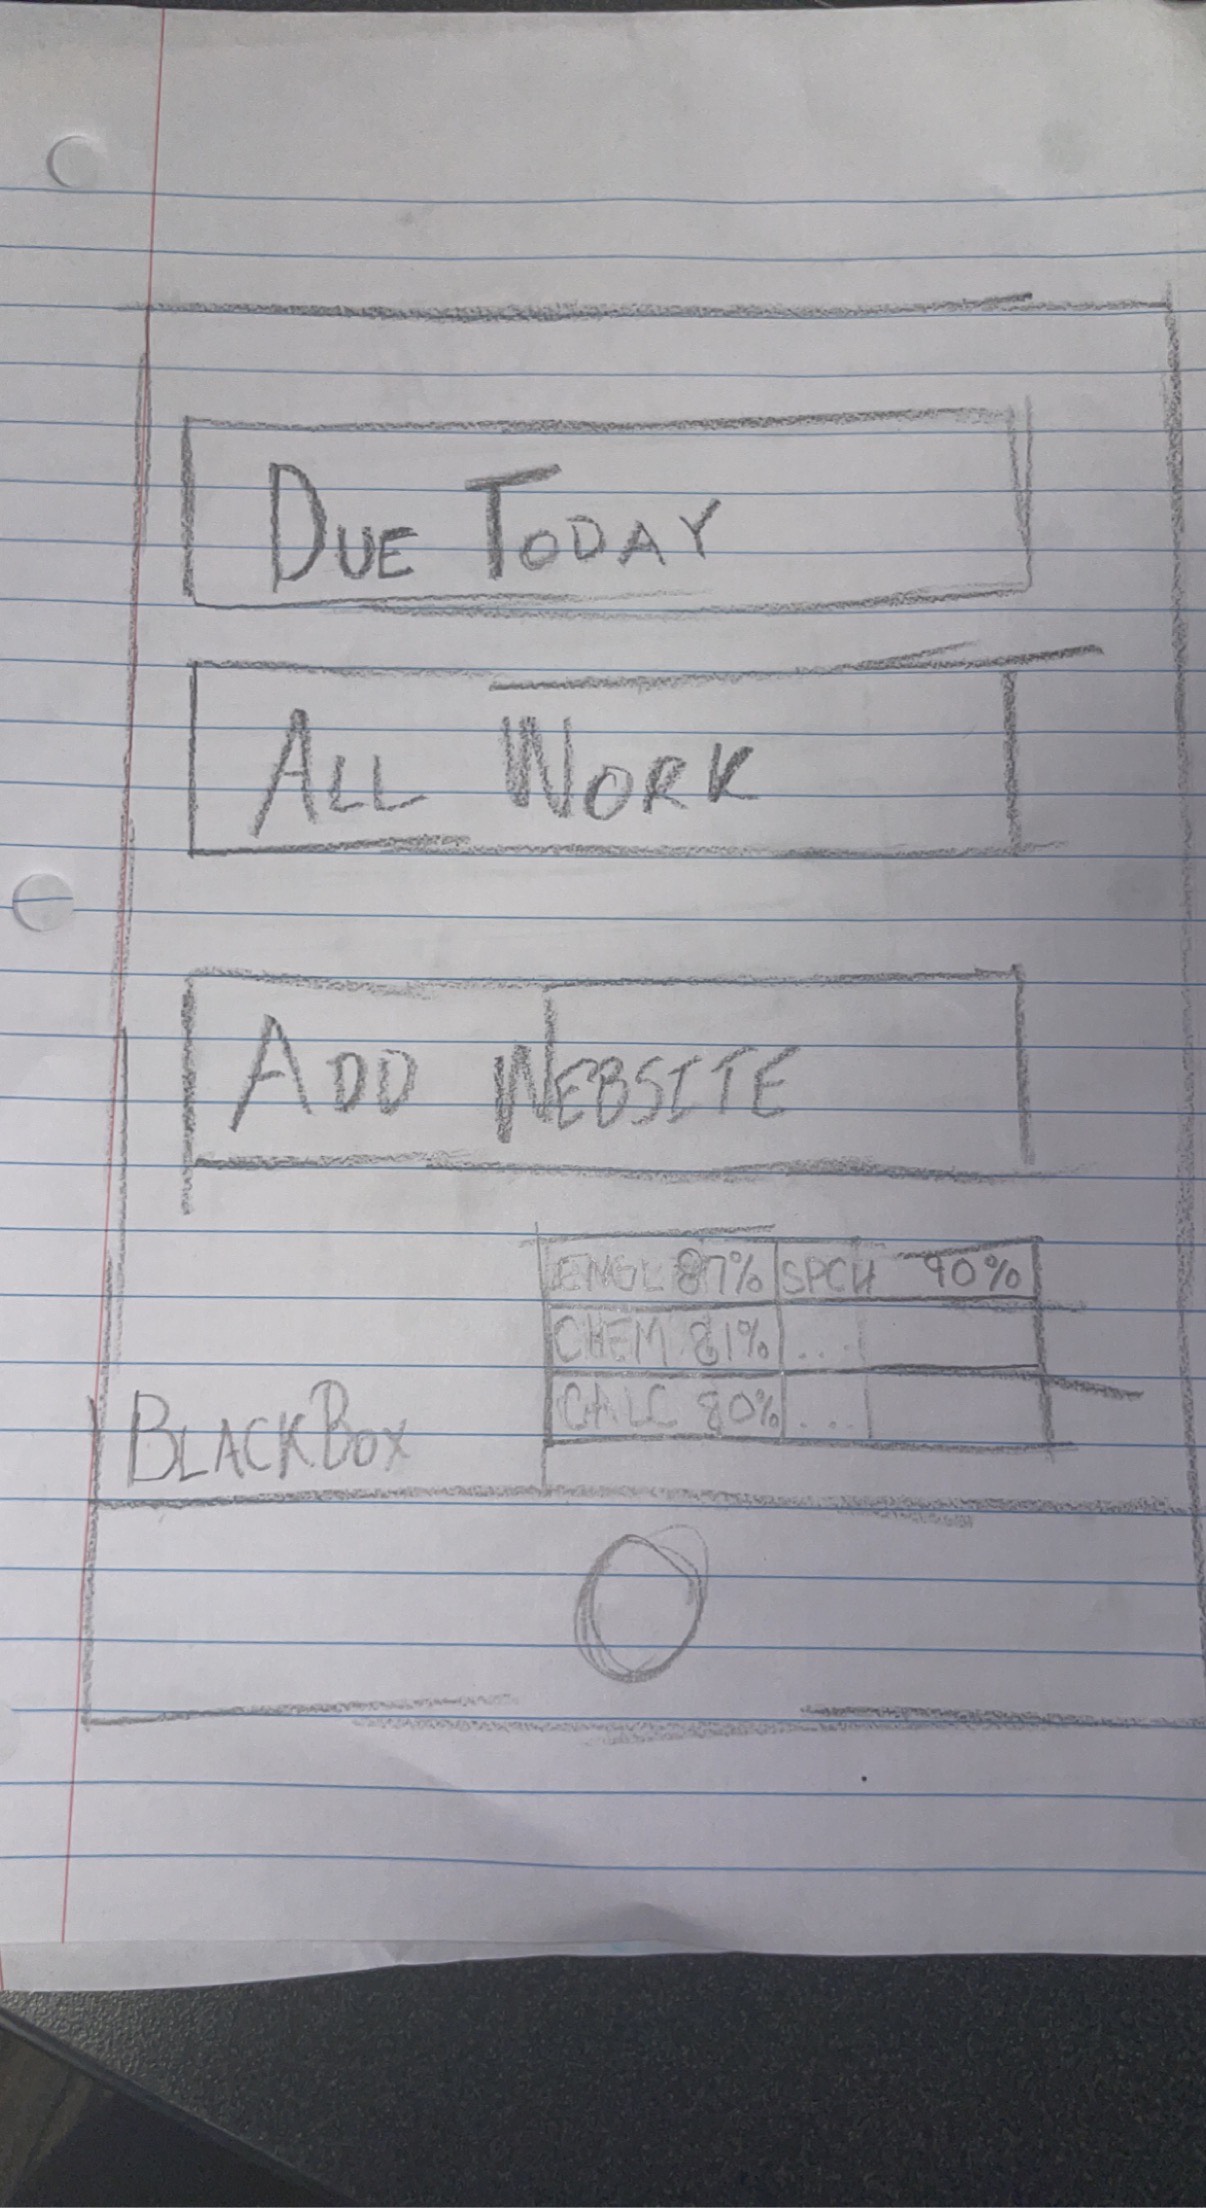 DUE TODAY
ALL WORK
ADD WEBSITE
ENGL 87% SPCH 90%
CHEM 81% ...
CALC 80% ...
BLACKBOX